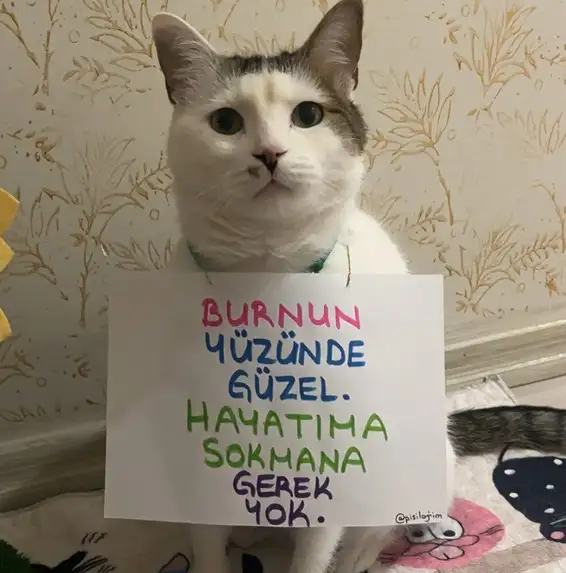 BURNUN
YÜZÜNDE
GÜZEL.
HAYATIMA
SOKMANA
GEREK
YOK.
@pisilojiim